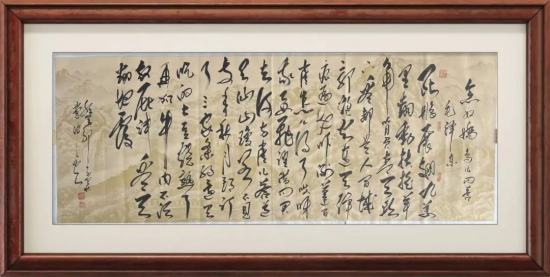 念奴娇 鸟儿问答
毛泽东
鲲鹏展翅九万
里翻动扶摇羊
角背负青天朝
下看都是人间城
郭炮火连天弹
痕遍地吓倒蓬间
雀怎么得了哎呀
我要飞跃借问君
去何方雀儿答道
有仙山琼阁不见
前年秋月朗订
了三家条约还有
吃的土豆烧熟了
再加牛肉不须
放屁试看天
翻地覆